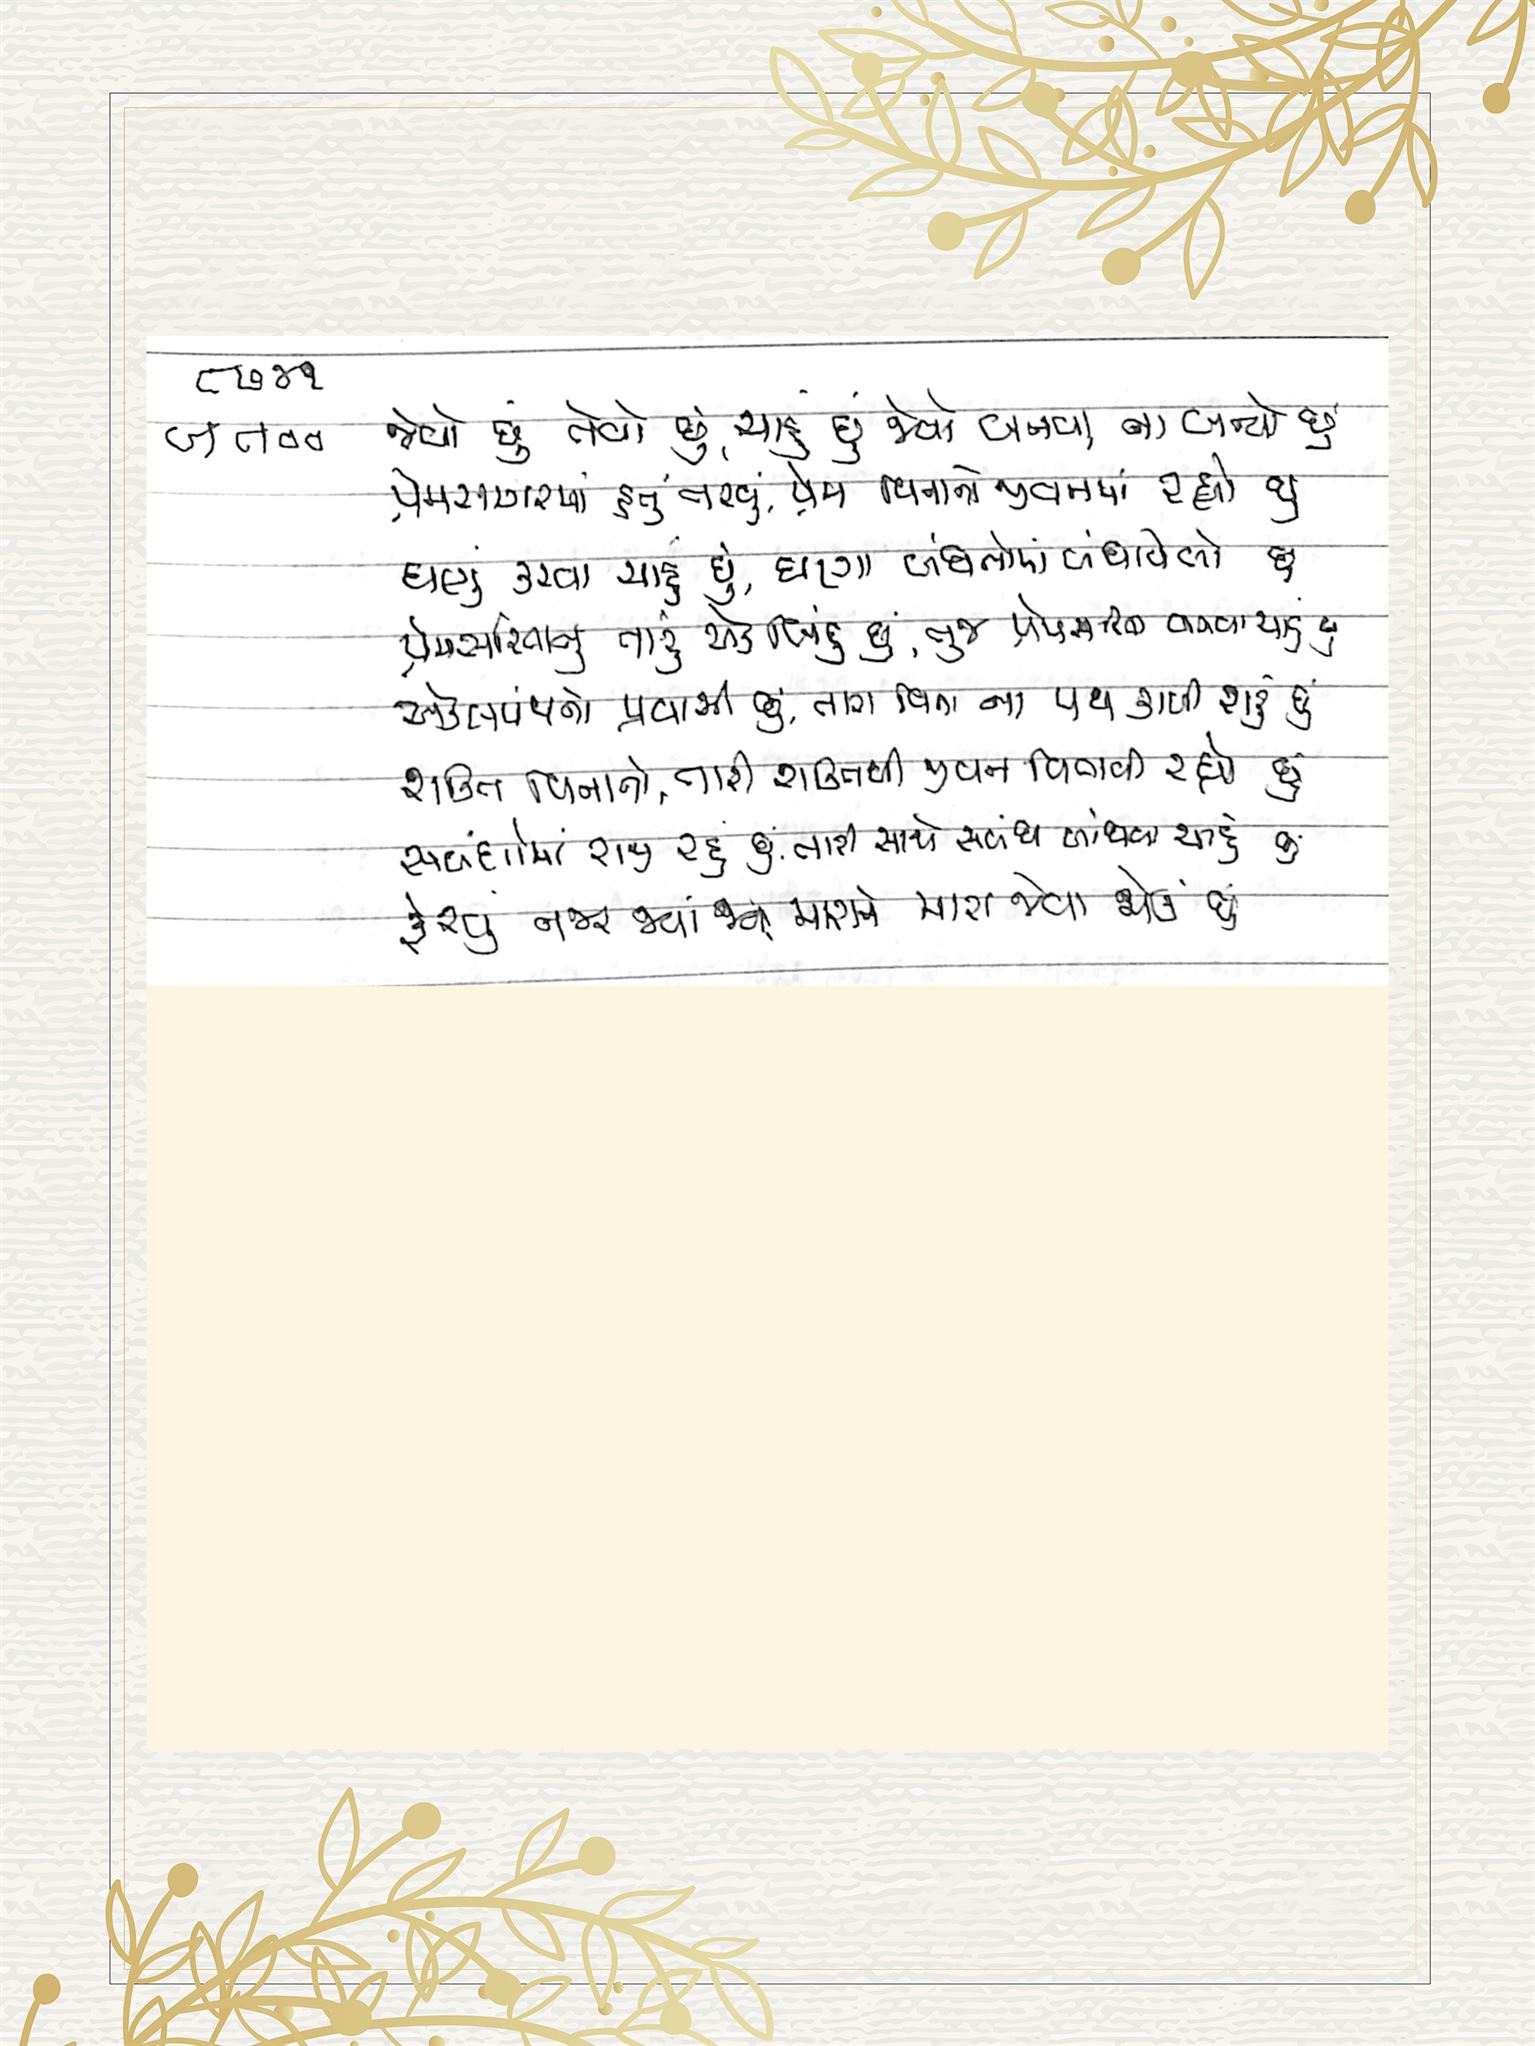 ૮૭૪૧
જેવો છું તેવો છું, ચાહું છું જેવો બનવા, ના બન્યો છું
પ્રેમસાગરમાં હતું તરવું, પ્રેમ વિનાનો જીવનમાં રહ્યો છું
ઘણું કરવા ચાહું છું, ઘણા બંધનોમાં બંધાયેલો છું
પ્રેમસરિતાનું તારું એક બિંદુ છું, તુજ પ્રેમસરિતા બનવા ચાહું છું
એકલપંથનો પ્રવાસી છું, તારા વિના ના પથ કાપી શકું છું
શક્તિ વિનાનો, તારી શક્તિથી જીવન વિતાવી રહ્યો છું
સબંધોમાં રાજી રહું છું. તારી સાથે સબંધ બાંધવા ચાહું છું
ફેરવું નજર જ્યાં જ્યાં, મારાને મારા જેવા જોઉં છું